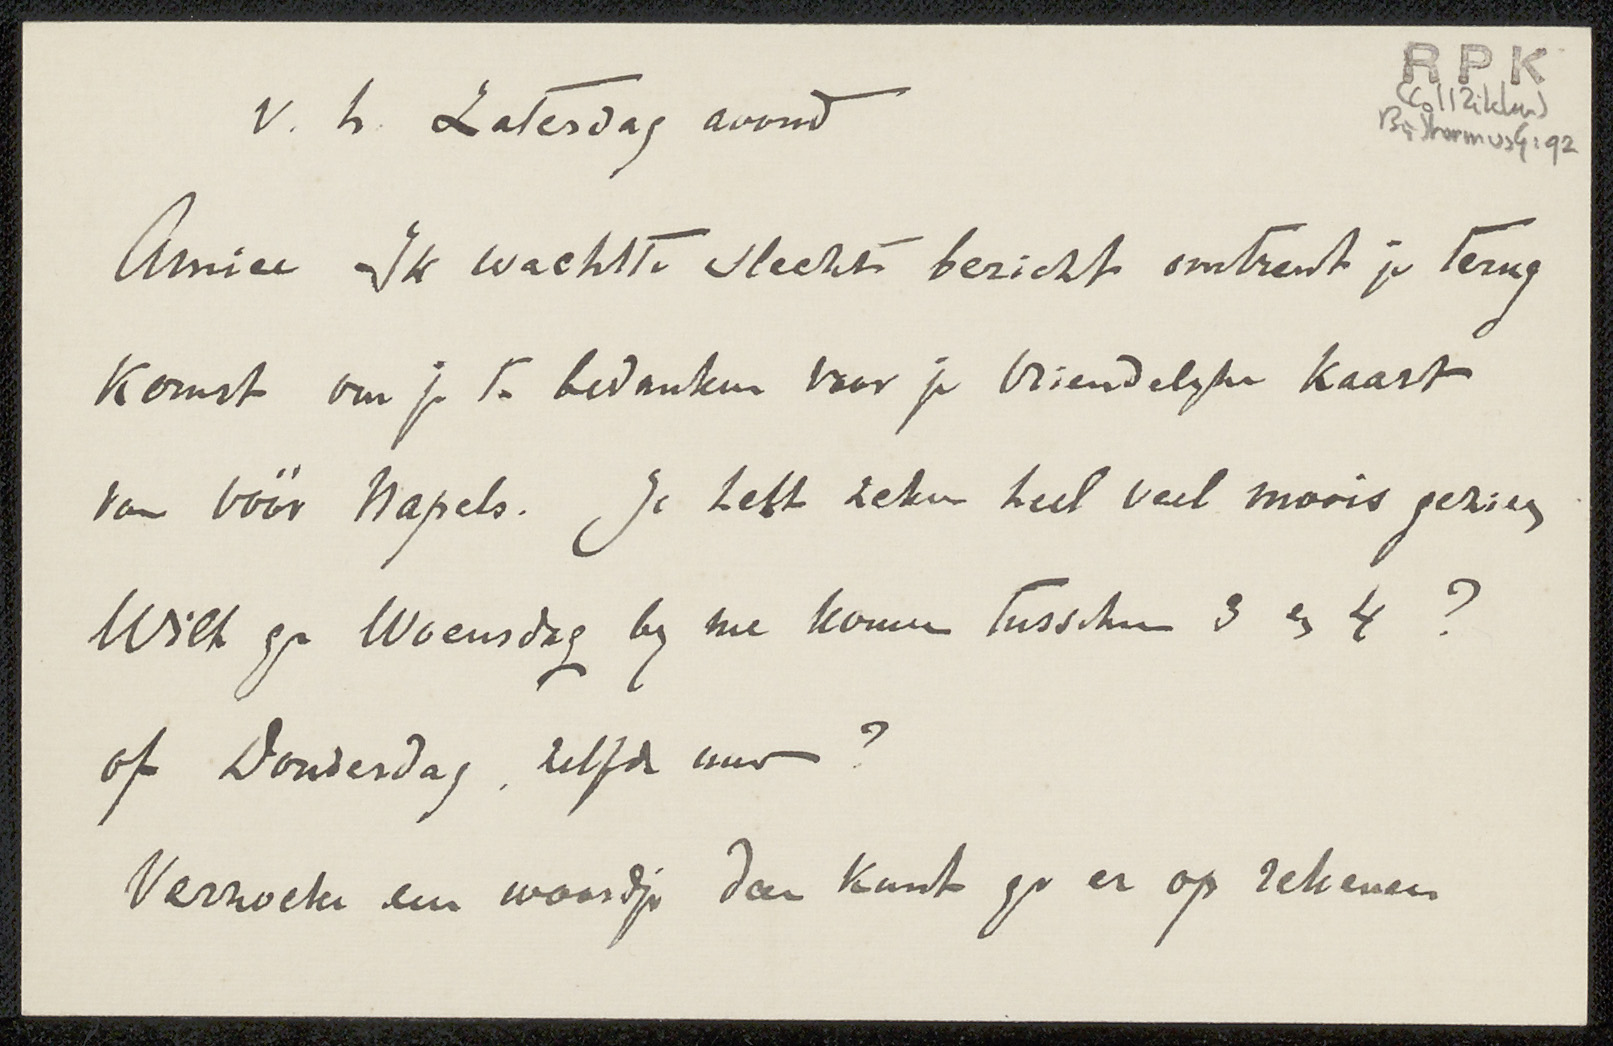 R P K
(Coll Zilcken)
v. h. Zaterdag avond
Amice Ik wachtte slechts bericht omtrent je terug
komst om je te bedanken voor je vriendelyke kaart
van vöör Napels. Je hebt zeker heel veel moois gezien
Wilt ge Woensdag by me komen tusschen 3 en 4 ?
of Donderdag, zelfde uur ?
Verzoeke een woordje dan kunt ge er op rekenen